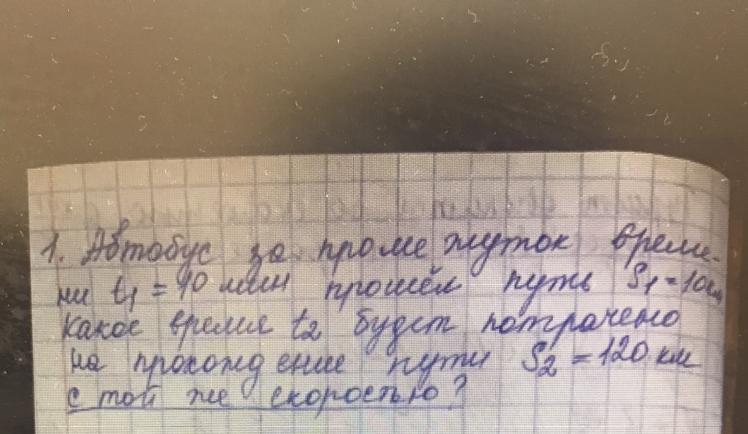 1. Автобус за промежуток време-
ни t1 = 10 мин прошёл путь S1 = 10км
Какое время t2 будет потрачено
на прохождение пути S2 = 120 км
с той же скоростью?